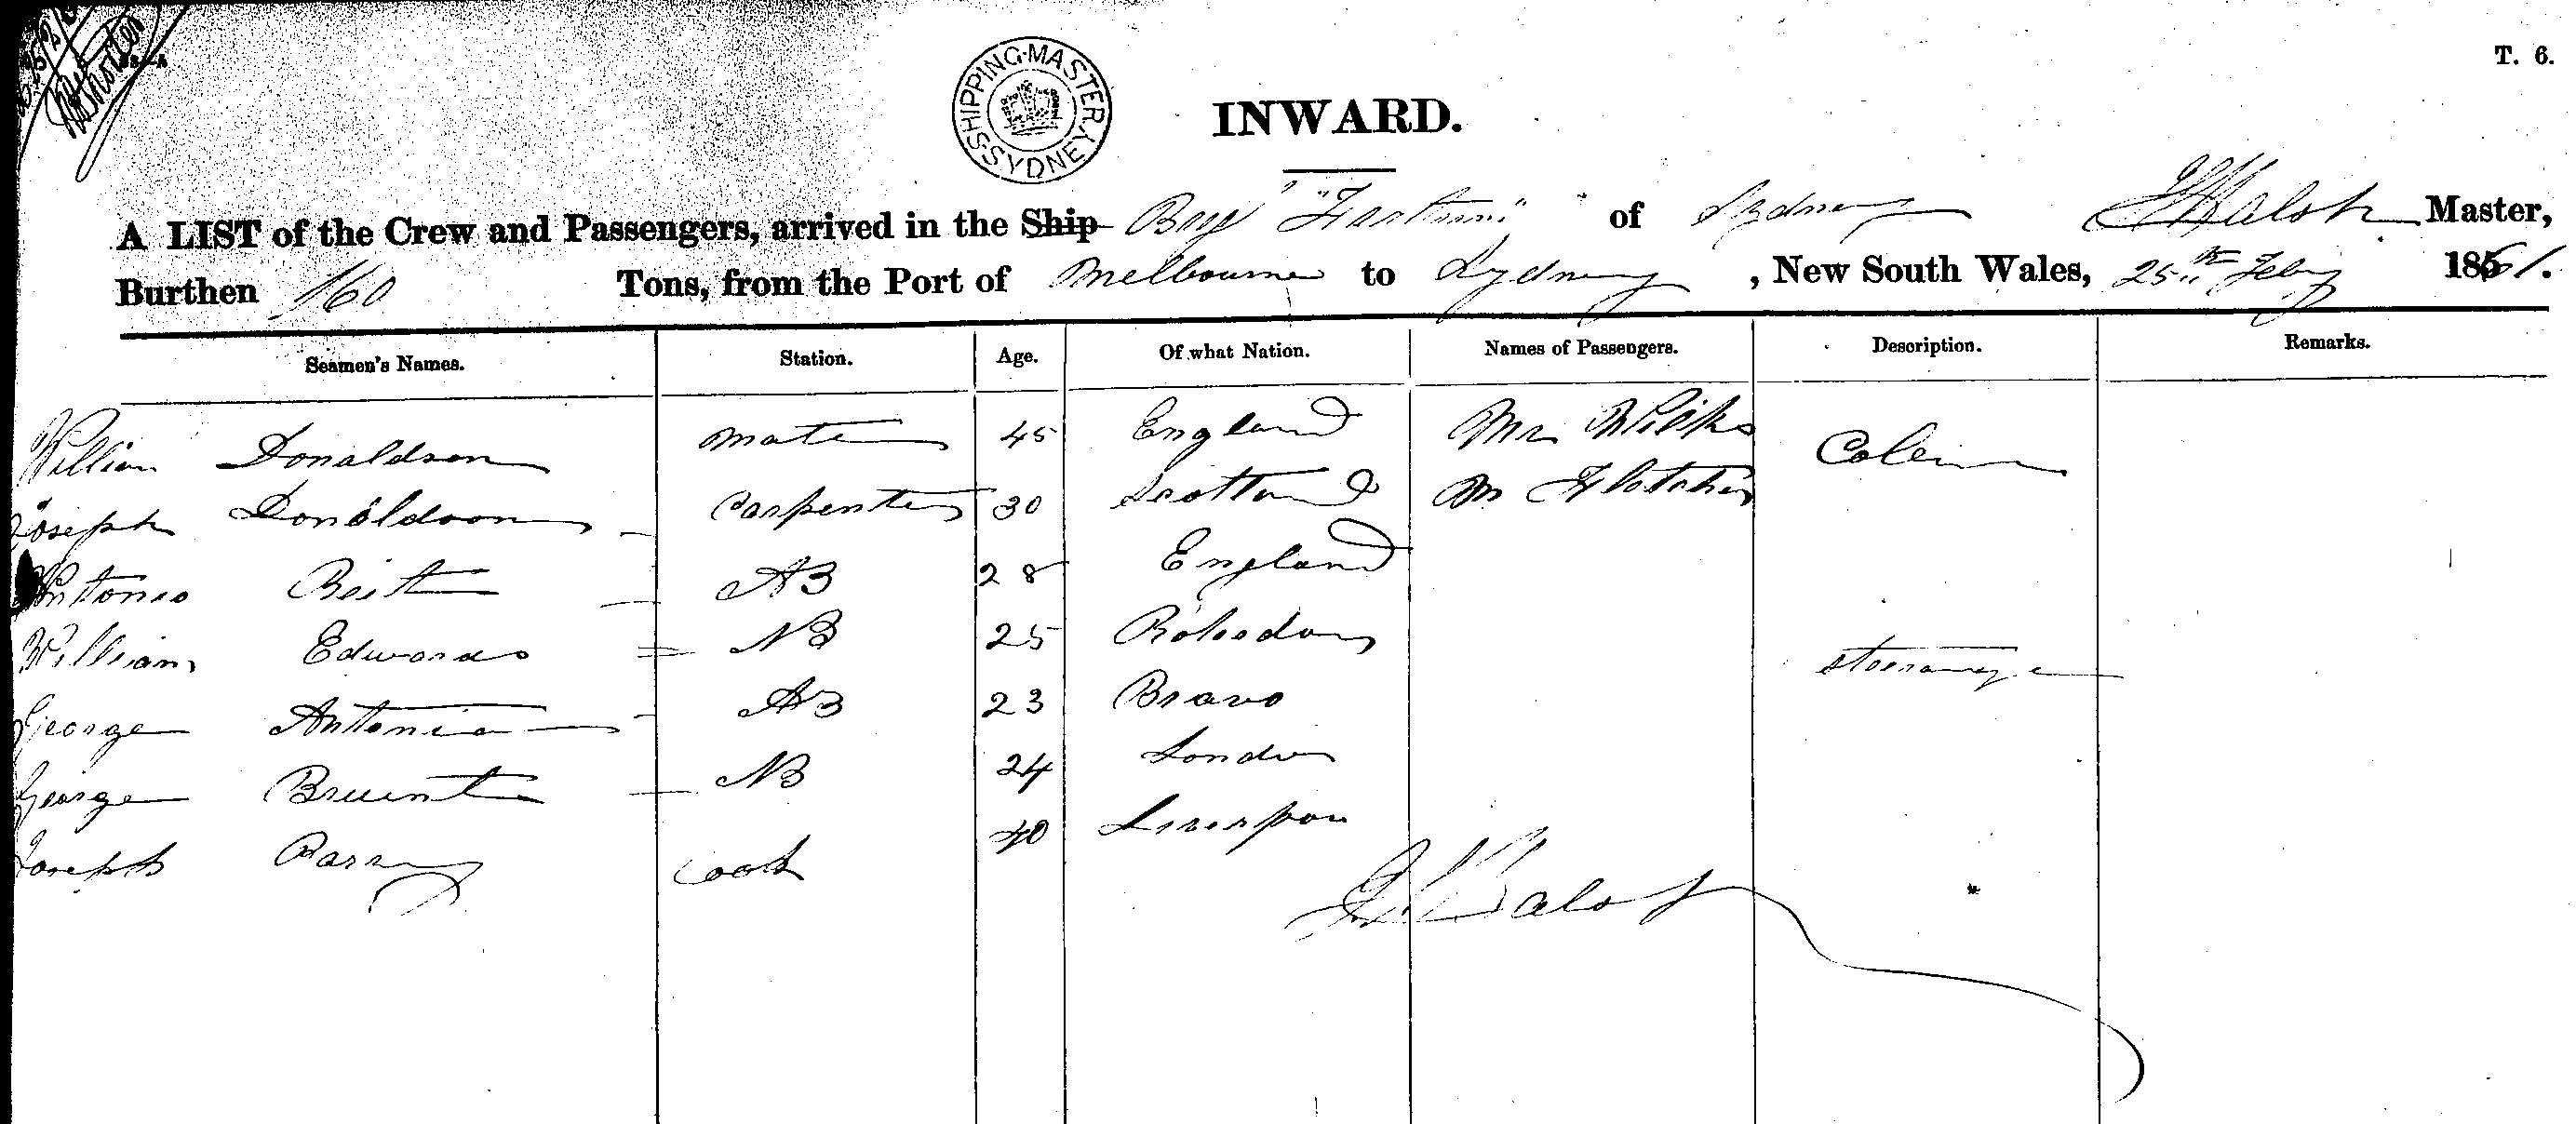 T. 6.
SHIPPING MASTER SYDNEY
INWARD.
A LIST of the Crew and Passengers, arrived in the Ship Brig of Sydney Walsh Master,
Burthen 160 Tons, from the Port of Melbourne to Sydney, New South Wales, 25th Feby 1861.
Seamen's Names. Station. Age. Of what Nation. Names of Passengers. Description. Remarks.
William Donaldson mate 45 England Mr Wilks
Joseph Donaldson Carpenter 30 Scotland M Fletcher
Antonio AB 28 England
William Edwards AB 25
George Antonia AB 23 Bravo steerage
George AB 24 London
Joseph Parry Cook 40 Liverpool
Walsh